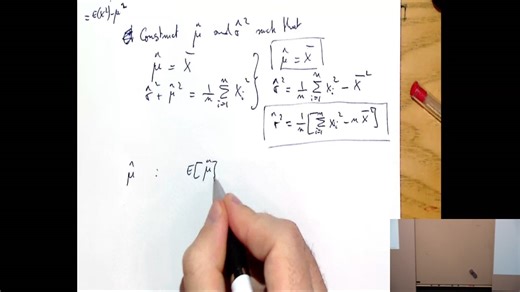 = E(X²) - μ²
Construct μ̂ and σ̂² such that
μ̂ = X̄
σ̂² + μ̂² = 1/n ∑ᵢ₌₁ⁿ Xᵢ²
μ̂ = X̄
σ̂² = 1/n ∑ᵢ₌₁ⁿ Xᵢ² - X̄²
σ̂² = 1/n [∑ᵢ₌₁ⁿ Xᵢ² - n X̄²]
μ̂ : E[μ̂]